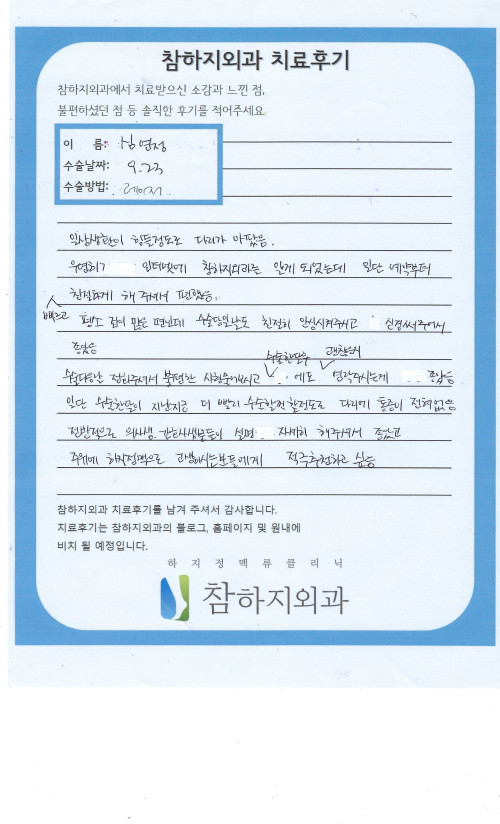 참하지외과 치료후기
참하지외과에서 치료받으신 소감과 느낀 점,
불편하셨던 점 등 솔직한 후기를 적어주세요.
이 름:
수술날짜: 9.23
수술방법: 레이저
일상생활이 힘들정도로 다리가 아팠음.
우연히 인터넷에 참하지외과를 알게 되었는데 일단 예약부터
빠르고
친절하게 해 주셔서 편했음.
평소 겁이 많은 편인데 수술당일날도 친절히 안심시켜주시고 신경써주셔서
좋았음
수술한달후 괜찮은지
수술다음날 전화주셔서 불편한 사항물어보시고 에도 연락주시는게 좋았음
일단 수술한달이 지난지금 더 빨리 수술할걸 할정도로 다리에 통증이 전혀없음
전반적으로 의사샘, 간호사샘분들이 설명 자세히 해주셔서 좋았고
주위에 하지정맥으로 고생하시는분들에게 적극추천하고 싶음
참하지외과 치료후기를 남겨 주셔서 감사합니다.
치료후기는 참하지외과의 블로그, 홈페이지 및 원내에
비치 될 예정입니다.
하지정맥류클리닉
참하지외과